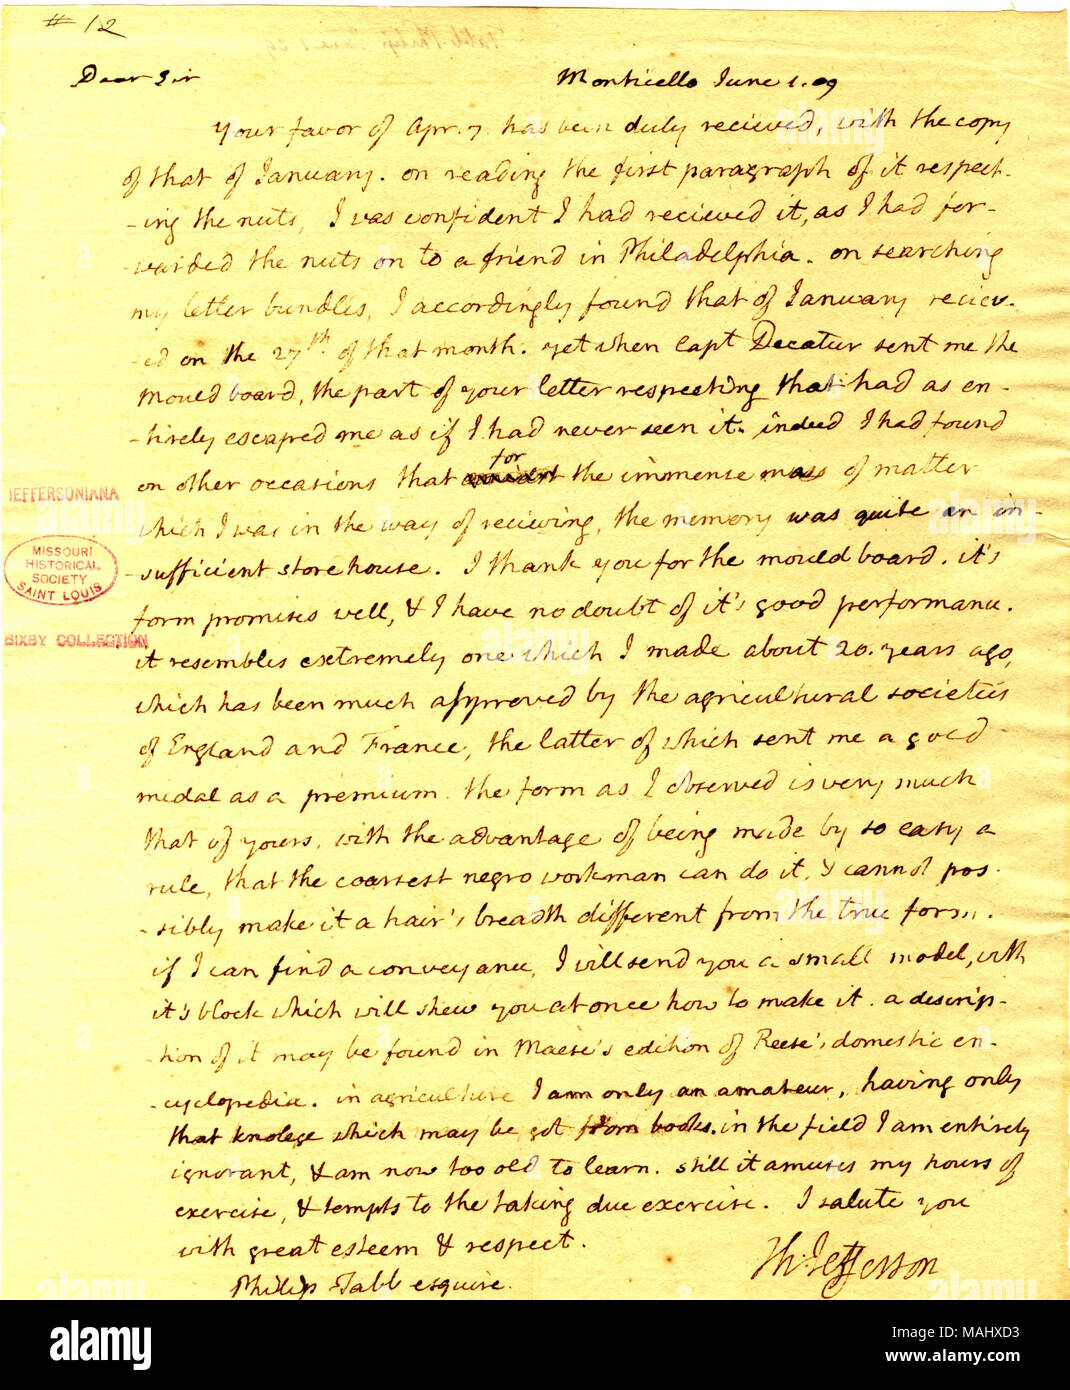 # 12
Dear Sir Monticello June 1. 09
Your favor of Apr. 7. has been duly recieved, with the copy
of that of January. on reading the first paragraph of it respect-
-ing the nuts, I was confident I had recieved it, as I had for-
-warded the nuts on to a friend in Philadelphia. on searching
my letter bundles, I accordingly found that of January reciev-
-ed on the 27th. of that month. yet when Capt Decatur sent me the
mould board, the part of your letter respecting that had as en-
-tirely escaped me as if I had never seen it. indeed I had found
on other occasions that for the immense mass of matter
which I was in the way of recieving, the memory was quite an in-
-sufficient storehouse. I thank you for the mould board. it's
form promises well, & I have no doubt of it's good performance.
it resembles extremely one which I made about 20. years ago,
which has been much approved by the agricultural societies
of England and France, the latter of which sent me a gold
medal as a premium. the form as I observed is very much
that of yours, with the advantage of being made by so easy a
rule, that the coarsest negro workman can do it, & cannot pos-
-sibly make it a hair's breadth different from the true form.
if I can find a conveyance, I will send you a small model, with
it's block which will shew you at once how to make it. a descrip-
-tion of it may be found in Maese's edition of Reese's domestic en-
-cyclopedia. in agriculture I am only an amateur, having only
that knolege which may be got from books. in the field I am entirely
ignorant, & am now too old to learn. still it amuses my hours of
exercise, & tempts to the taking due exercise. I salute you
with great esteem & respect.
Th: Jefferson
Philip Tabb esquire.
JEFFERSONIANA
MISSOURI
HISTORICAL
SOCIETY
SAINT LOUIS
BIXBY COLLECTION
alamy
Image ID: MAHXD3
www.alamy.com